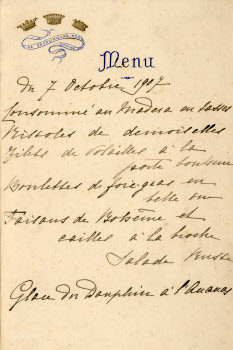 Menu
du 7 Octobre 1907
Consommé au Madera en tasses
Rissoles de demoiselles
Filets de volailles à la
Boulettes de foie gras en
belle vue
Faisans de Bohême et
cailles à la broche
Salade Russe
Glace du Dauphin à l'Ananas